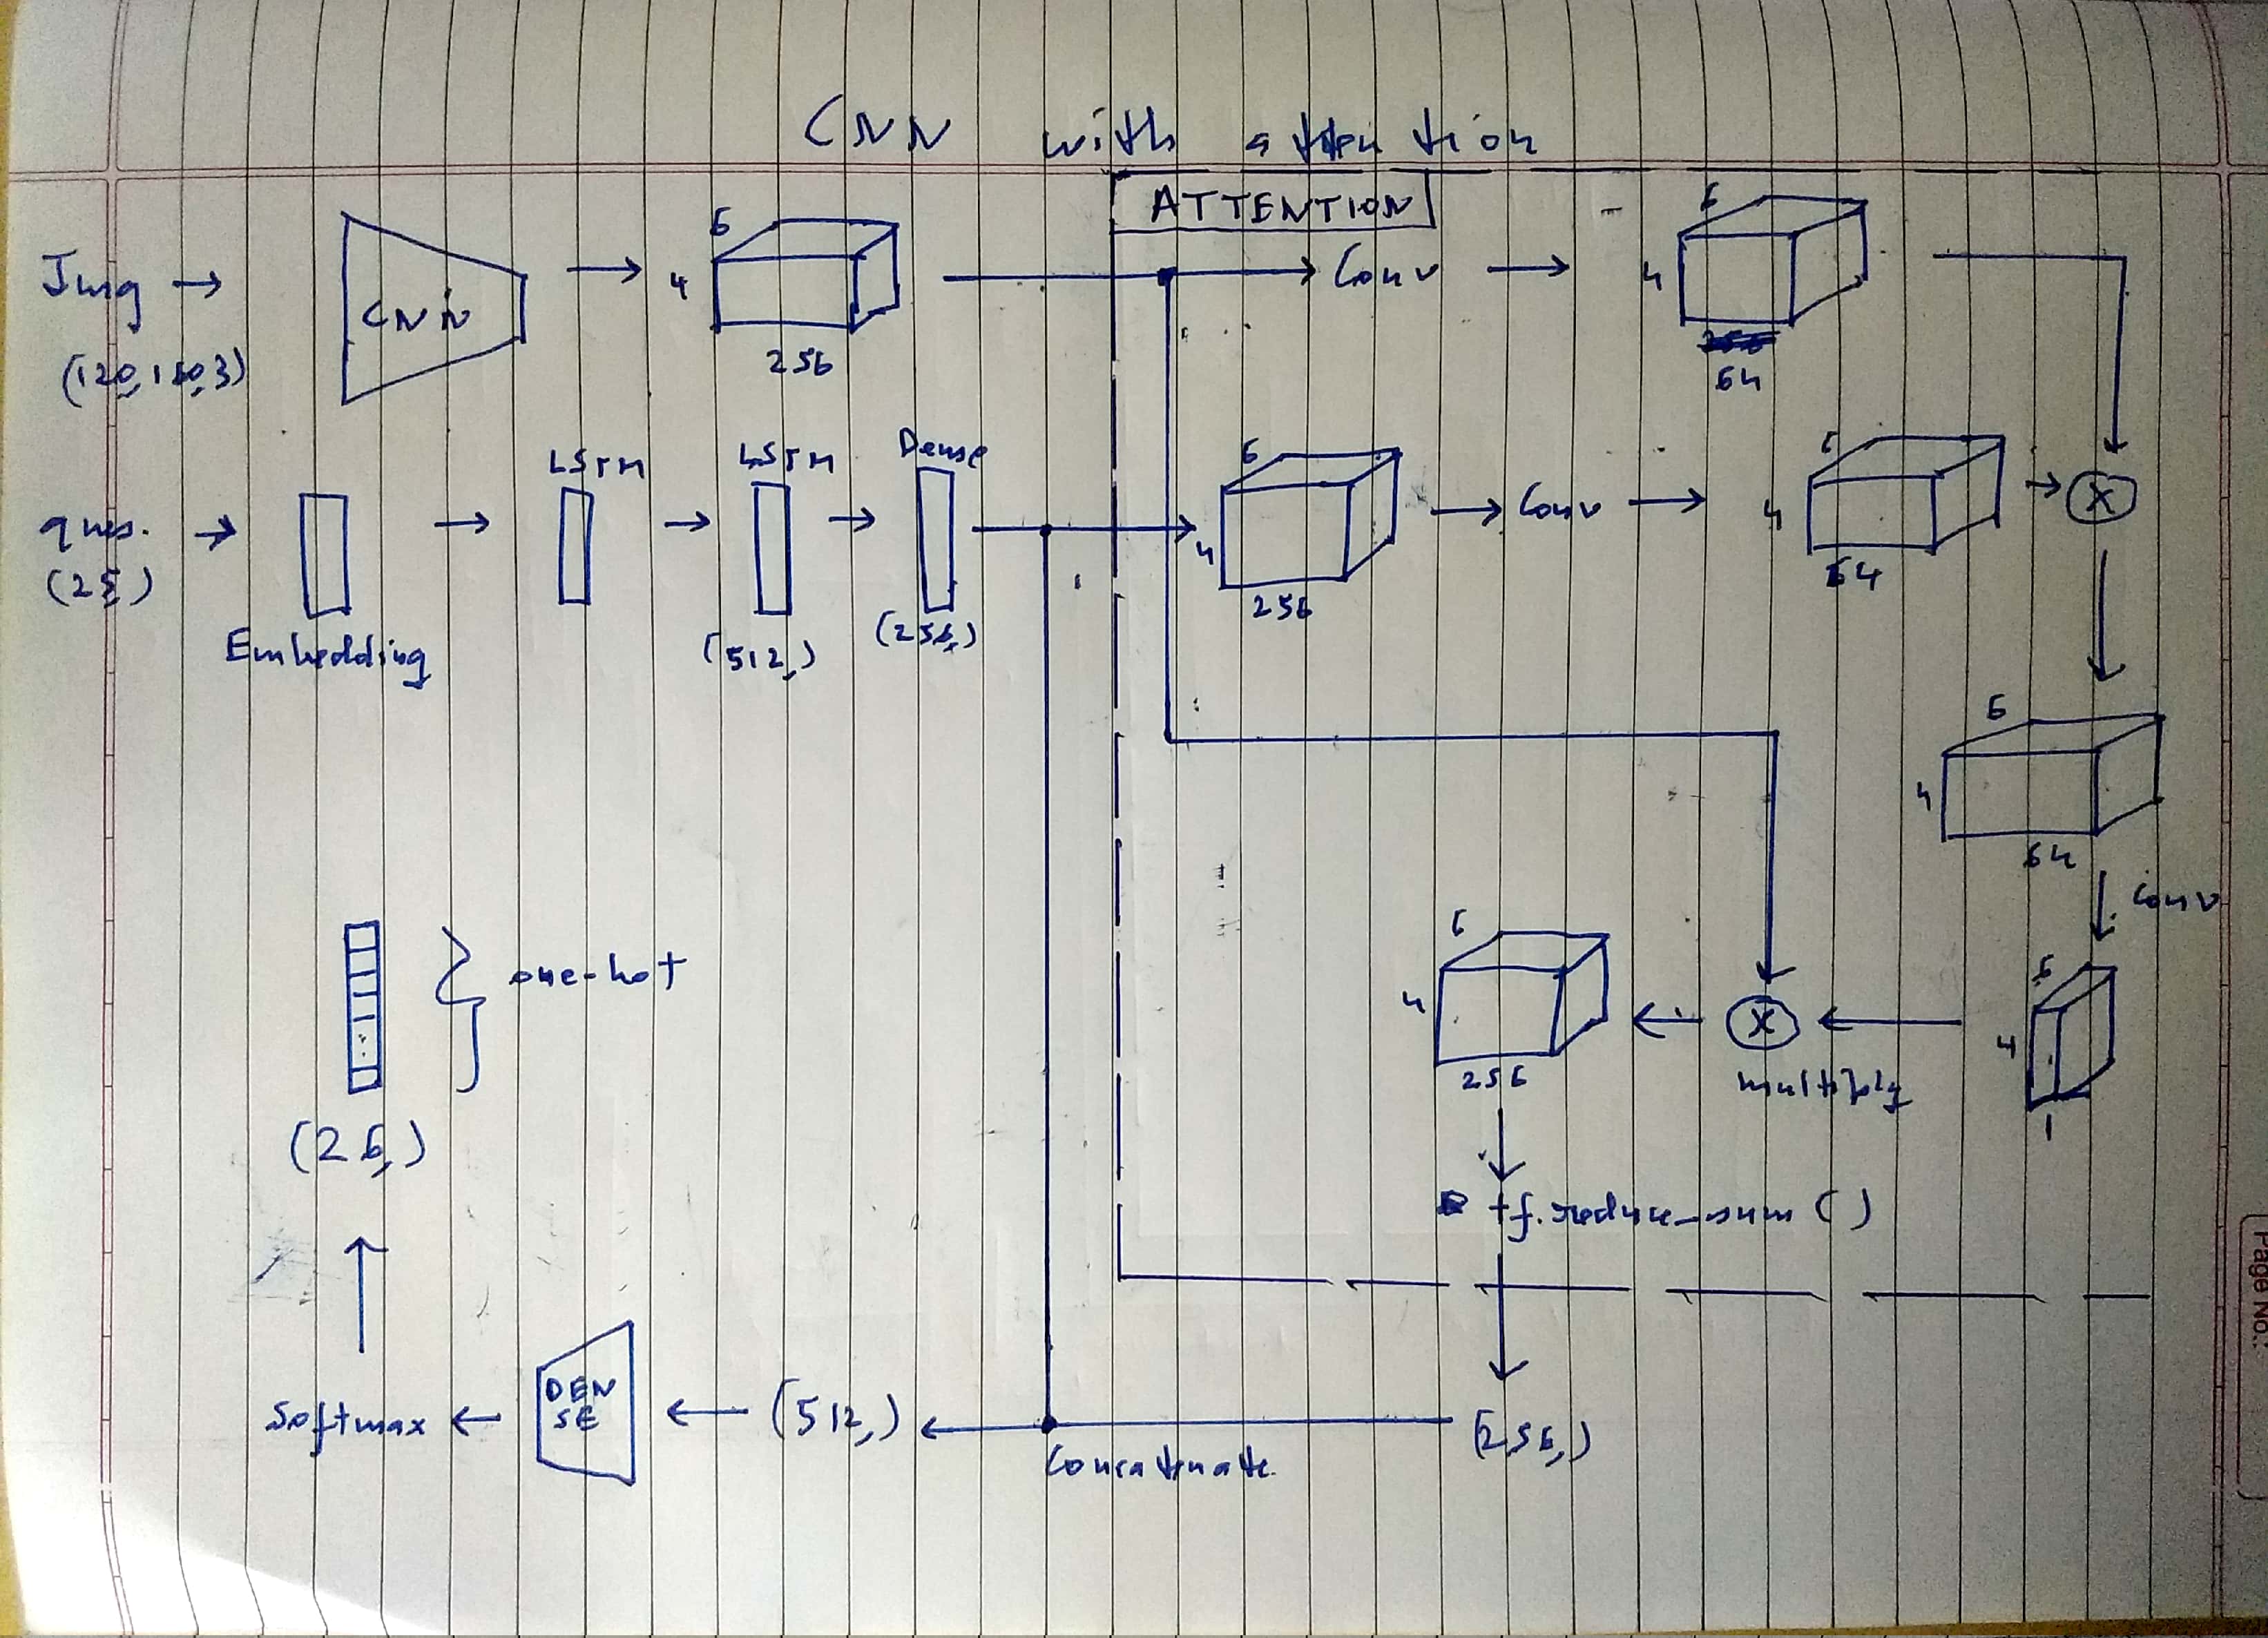 CNN with attention
ATTENTION
Img → CNN → 6 4 256 → Conv → 6 4 64
(120,160,3)
ques. → → LSTM → LSTM → Dense → 6 4 256 → Conv → 6 4 64 → X
Embedding
(512,)
(256,)
6 4 64
Conv
6 4 1
X
multiply
6 4 256
tf.reduce_sum()
(256,)
Concatinate
(512,)
DEN
SE
Softmax
(26,)
one-hot
Page No.: